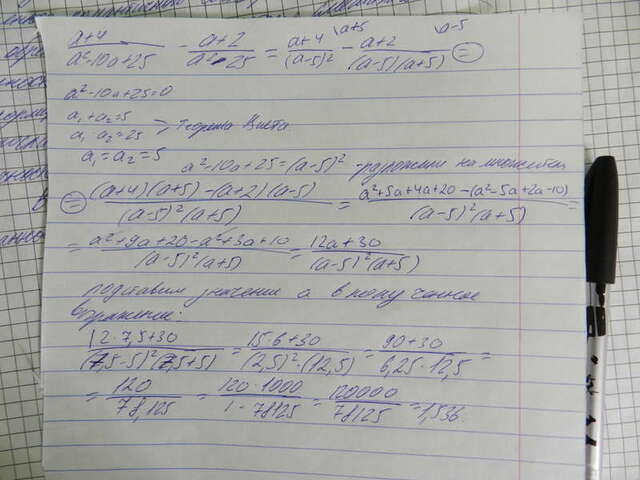 a+4/a²-10a+25 - a+2/a²-25 = a+4/(a-5)² \a+5 - a+2/(a-5)(a+5) \a-5 =
a²-10a+25=0
a₁+a₂=5
a₁ a₂=25 => Теорема Виета
a₁=a₂=5
a²-10a+25=(a-5)² - разложили на множители
= (a+4)(a+5)-(a+2)(a-5)/(a-5)²(a+5) = a²+5a+4a+20-(a²-5a+2a-10)/(a-5)²(a+5) =
= a²+9a+20-a²+3a+10/(a-5)²(a+5) = 12a+30/(a-5)²(a+5)
подставим значение a в полученное
выражение:
12·7,5+30/(7,5-5)²(7,5+5) = 15·6+30/(2,5)²·(12,5) = 90+30/6,25·12,5 =
= 120/78,125 = 120·1000/1·78125 = 120000/78125 = 1,536.